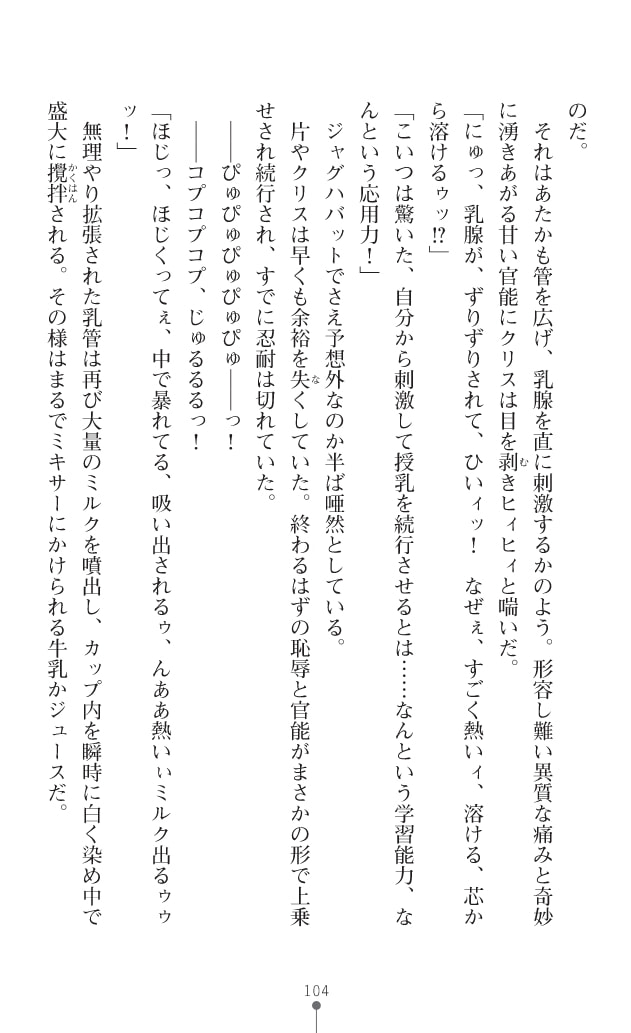 のだ。
　それはあたかも管を広げ、乳腺を直に刺激するかのよう。形容し難い異質な痛みと奇妙
に湧きあがる甘い官能にクリスは目を剥きヒィヒィと喘いだ。
「にゅっ、乳腺が、ずりずりされて、ひいィッ！　なぜぇ、すごく熱いィ、溶ける、芯か
ら溶けるゥッ!?」
「こいつは驚いた、自分から刺激して授乳を続行させるとは……なんという学習能力、な
んという応用力！」
　ジャグハバットでさえ予想外なのか半ば唖然としている。
　片やクリスは早くも余裕を失くしていた。終わるはずの恥辱と官能がまさかの形で上乗
せされ続行され、すでに忍耐は切れていた。
　――ぴゅぴゅぴゅぴゅぴゅ――っ！
　――コプコプコプ、じゅるるるっ！
「ほじっ、ほじくってぇ、中で暴れてる、吸い出されるゥ、んああ熱いぃミルク出るゥゥ
ッ！」
　無理やり拡張された乳管は再び大量のミルクを噴出し、カップ内を瞬時に白く染め中で
盛大に攪拌される。その様はまるでミキサーにかけられる牛乳かジュースだ。
む
な
かくはん
104